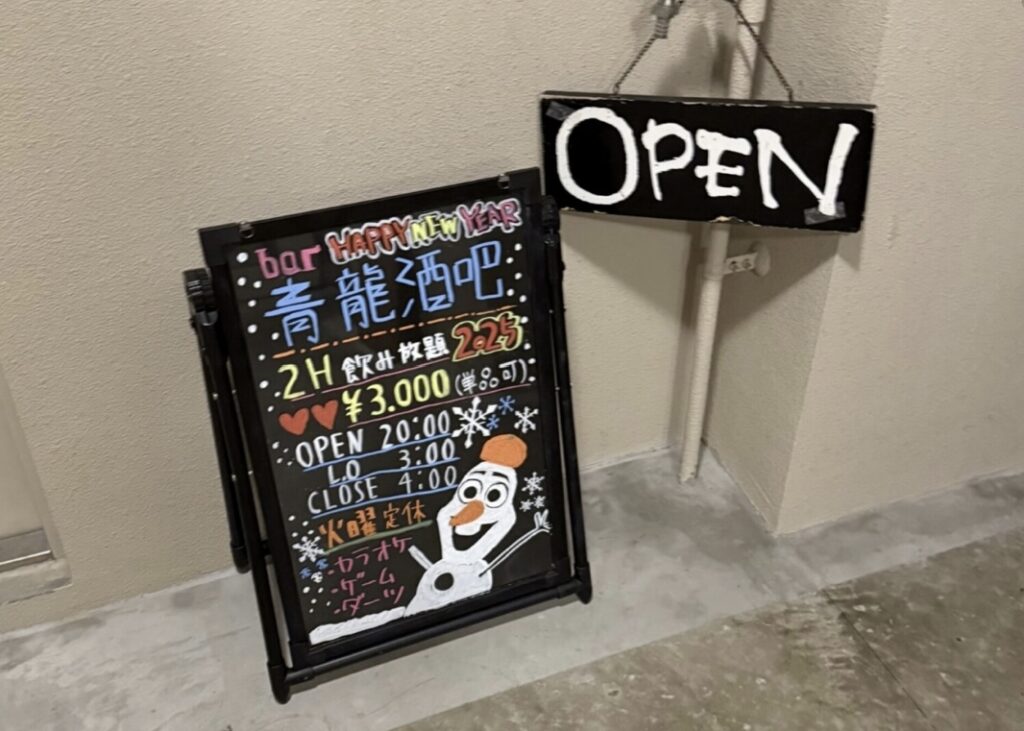 OPEN
bar HAPPY NEW YEAR
青龍酒吧
2H 飲み放題 2025
¥3.000 (単品可)
OPEN 20:00
L.O 3:00
CLOSE 4:00
火曜定休
・カラオケ
・ゲーム
・ダーツ